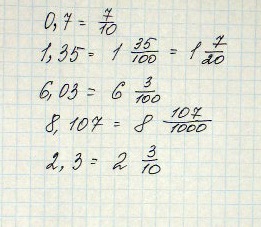 0,7 = 7/10
1,35 = 1 35/100 = 1 7/20
6,03 = 6 3/100
8,107 = 8 107/1000
2,3 = 2 3/10